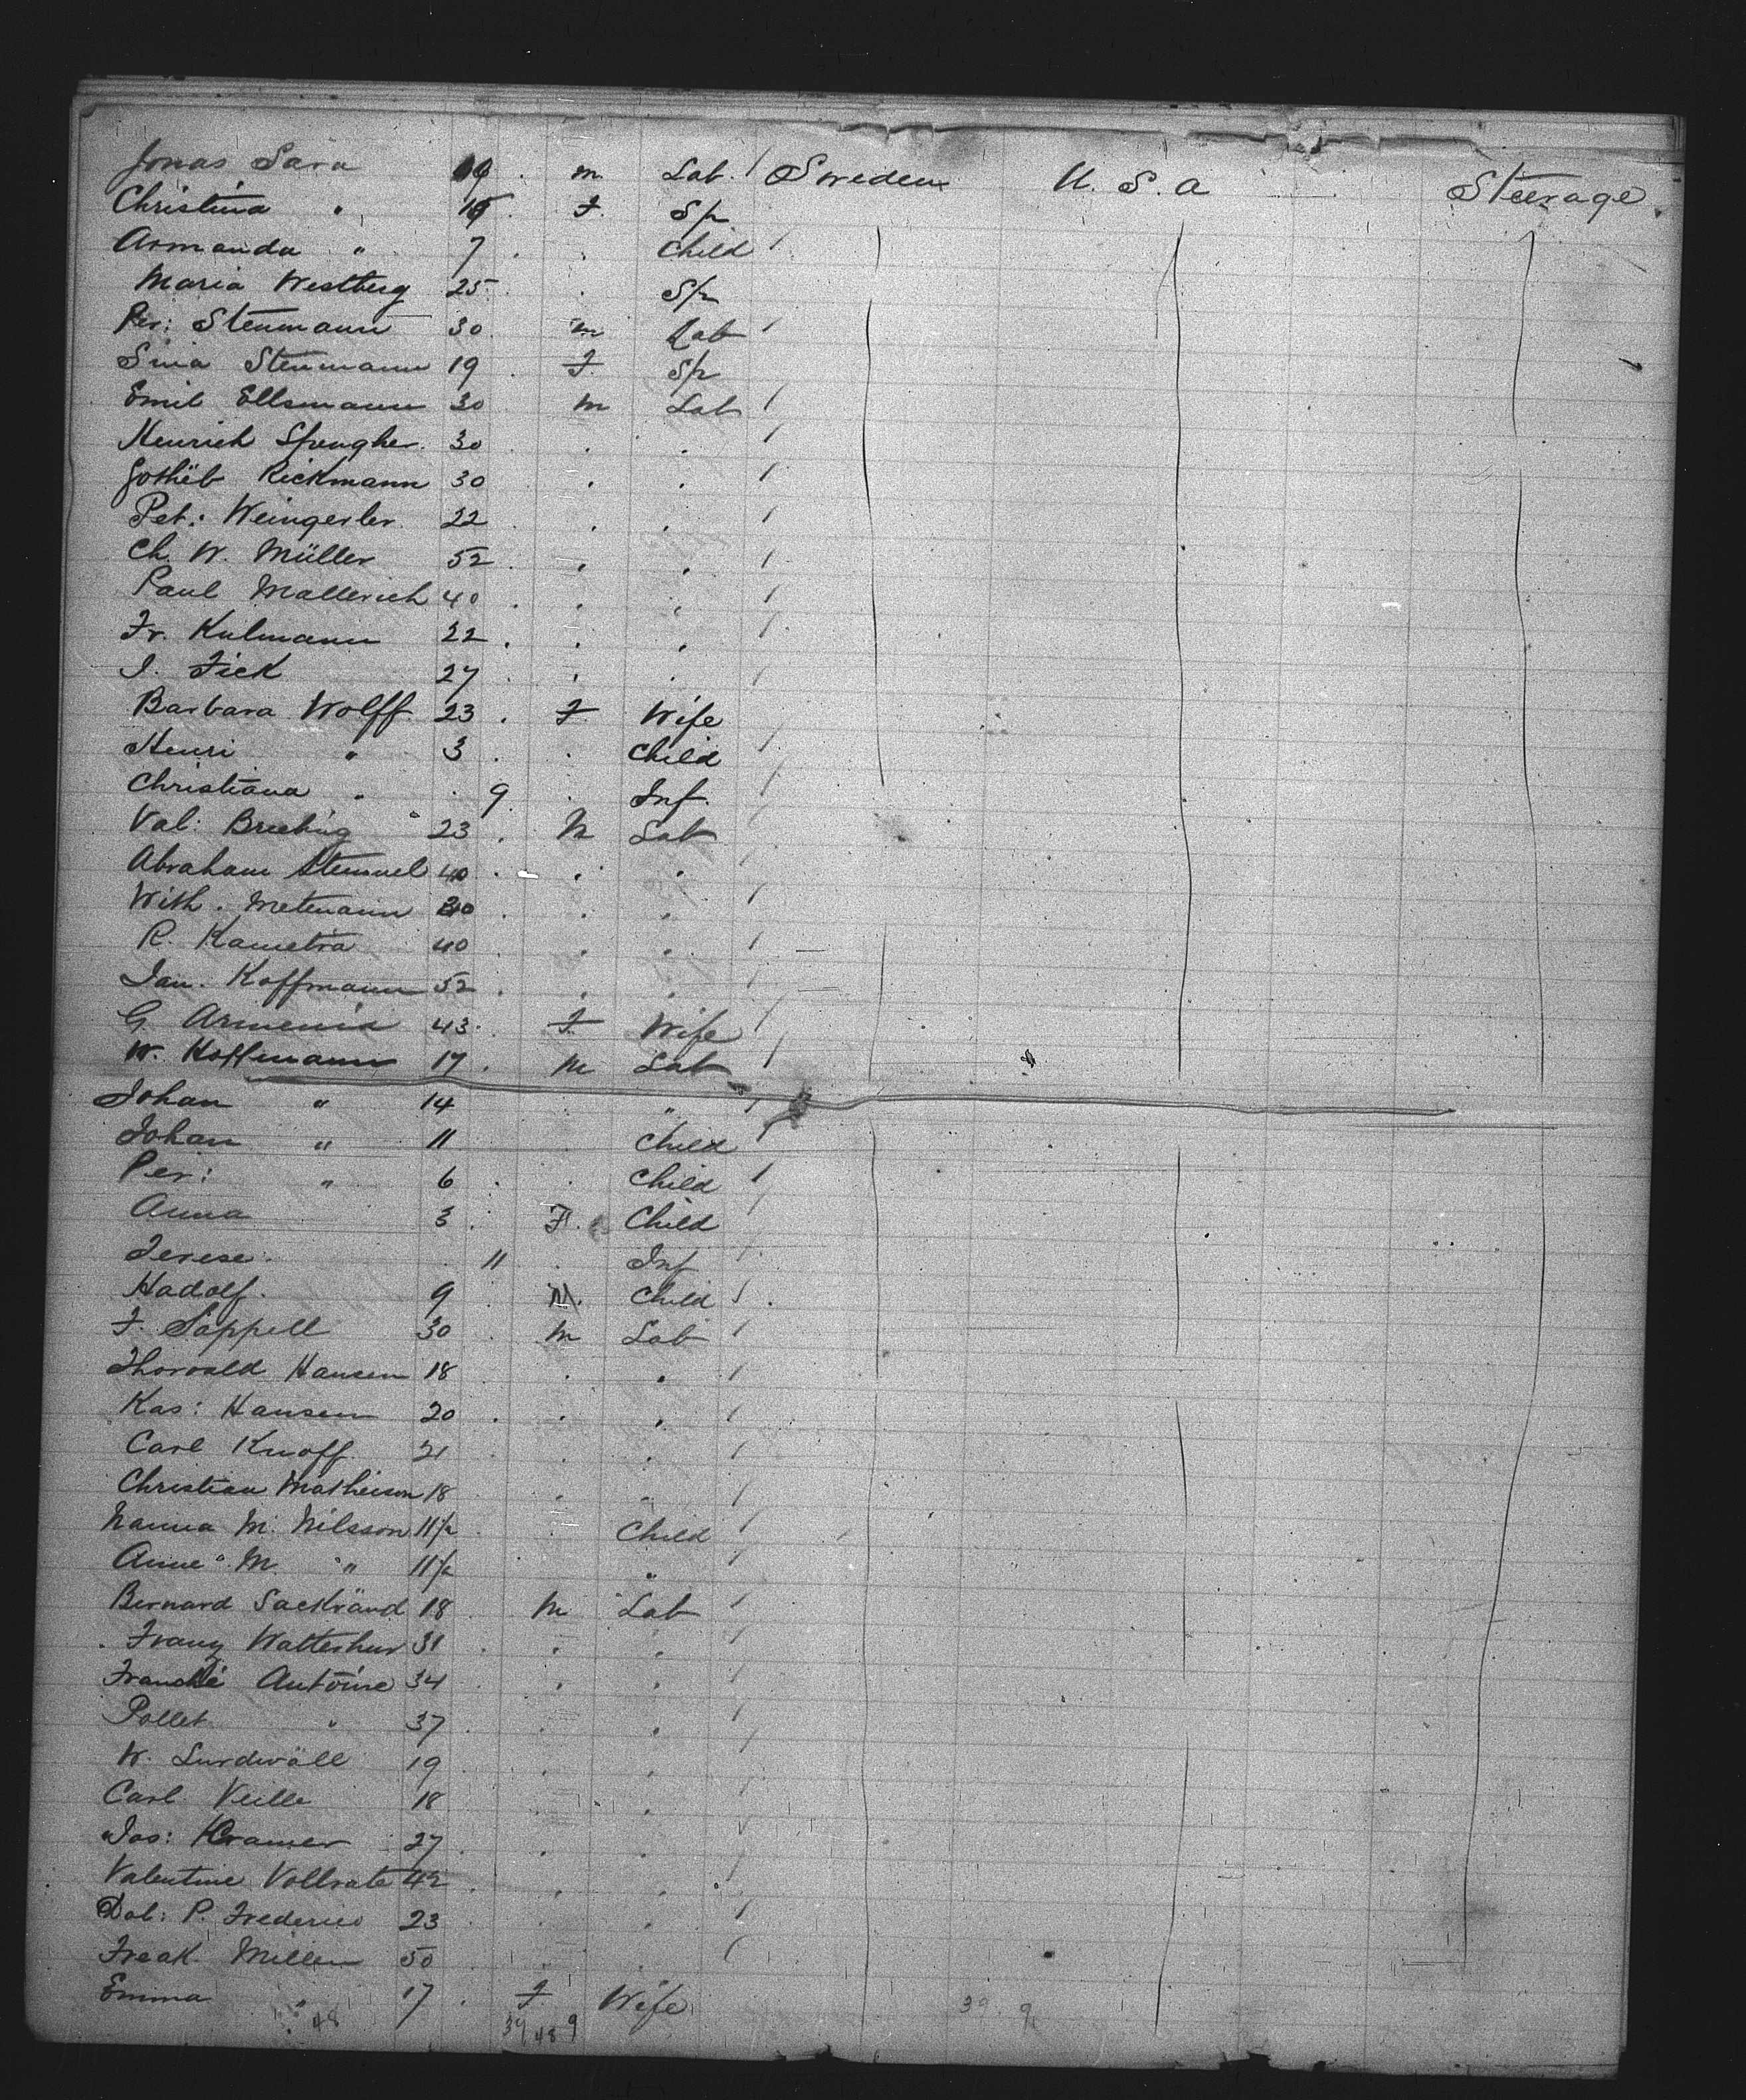 Jonas Sara 19 . m. Lab. / Sweden U. S. a Steerage
Christina " 15 . F. Sp
Armanda " 7 . . Child /
Maria Westberg 25 . . Sp
Per: Stenmann 30 m Lab /
Sina Stenmann 19 . F. Sp
Emil Ellsmann 30 m Lab /
Henrich Spengher. 30 . . /
Gothëb Rickmann 30 . . /
Pet: Weingerler. 22 . . . /
Ch. W. Müller 52 . . . /
Paul Mallerich 40 . . . /
Fr. Kulmann 22 . . . /
I. Fick 27 . . . /
Barbara Wolff 23 . F. Wife
Henri " 3 . . Child /
Christiana " 9 . Inf. /
Val: Breebing 23 . M Lab
Abraham Stemmel 40 . . .
With. Metmann 30 . . . /
R. Kametra 40 . . /
Jan. Koffmann 52 . . . /
G. Armenia 43 . F Wife /
W. Koffmann 17 . M Lab /
Johan " 14 " /
Johan " 11 Child /
Per: " 6 . . Child /
Anna 3 . F. Child /
Terese. 11 . Inf /
Hadolf. 9 . M. Child /
F. Sappell 30 . m Lab /
Thorvald Hansen 18 . . /
Kas: Hansen 20 . . . /
Carl Knoff 21 . . /
Christian Matheison 18 . . /
Nanna M. Nilsson 11/2 Child /
Anne M. " 11/2 " /
Bernard Sackränd 18 . M Lab /
Franz Watterhur 31 . . . /
Antoine 34 . . . /
Pollet " 37 . . . /
W. Lurdwäll 19 . . . /
Carl Veille 18 . /
Jos: Kramer 27 . . . /
Valentine Vollrate 42 . . . /
Dob: P. Frederico 23 . . . /
Freak. Millen 50 . . . /
Emma " 17 . F Wife
48 39 48 9 39. 9